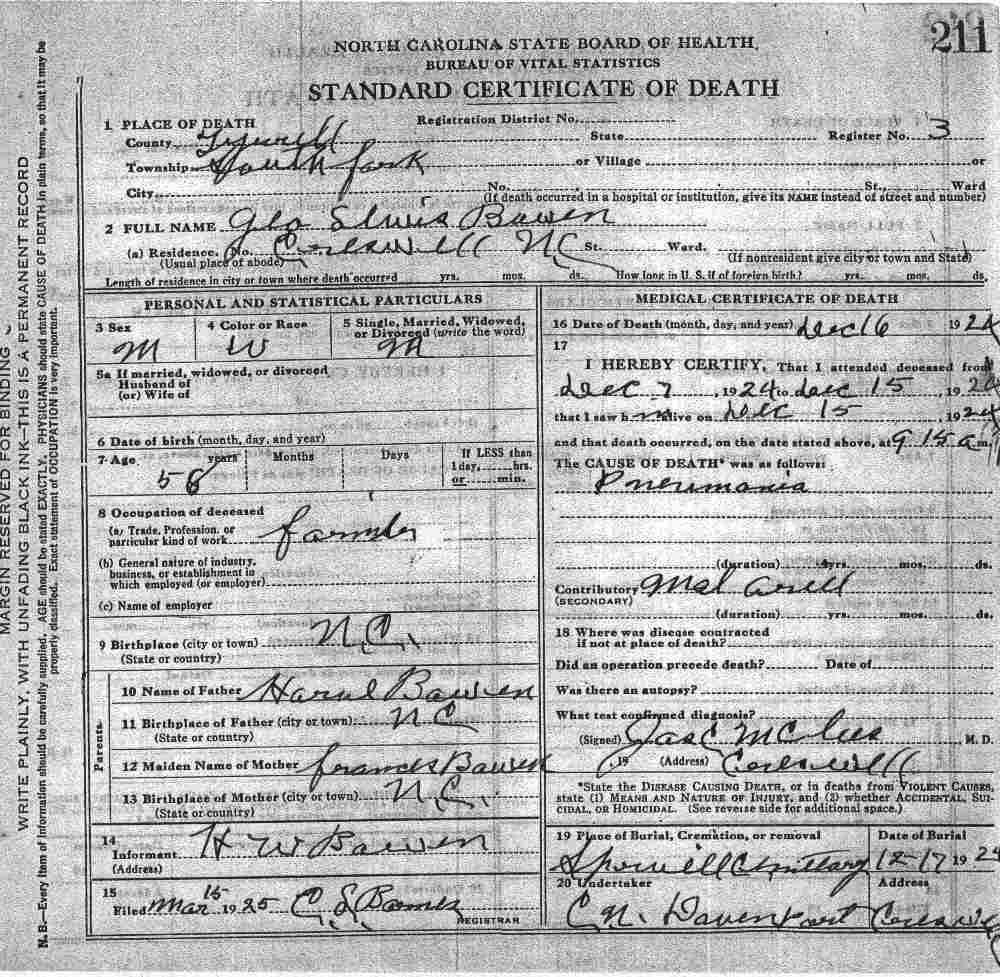 211
NORTH CAROLINA STATE BOARD OF HEALTH,
BUREAU OF VITAL STATISTICS
STANDARD CERTIFICATE OF DEATH
1 PLACE OF DEATH Registration District No.
County Tyrrell State Register No. 3
Township South fork or Village or
City No. St., Ward
(If death occurred in a hospital or institution, give its NAME instead of street and number)
2 FULL NAME Geo Elwis Bawen
(a) Residence. No. Creswell NC St. Ward.
(Usual place of abode) (If nonresident give city or town and State)
Length of residence in city or town where death occurred yrs. mos. ds. How long in U. S. if of foreign birth? yrs. mos. ds.
PERSONAL AND STATISTICAL PARTICULARS
3 Sex 4 Color or Race 5 Single, Married, Widowed,
or Divorced (write the word)
M W M
5a If married, widowed, or divorced
Husband of
(or) Wife of
6 Date of birth (month, day, and year)
7 Age years Months Days If LESS than
1 day, hrs.
58 or min.
8 Occupation of deceased
(a) Trade, Profession, or
particular kind of work farmer
(b) General nature of industry,
business, or establishment in
which employed (or employer)
(c) Name of employer
9 Birthplace (city or town) N.C.
(State or country)
Parents.
10 Name of Father Bawen
11 Birthplace of Father (city or town) NC
(State or country)
12 Maiden Name of Mother Frances Bawen
13 Birthplace of Mother (city or town) N.C.
(State or country)
14
Informant H W Bawen
(Address)
15
Filed Mar 15 1925 C. S. Barnes
REGISTRAR
MEDICAL CERTIFICATE OF DEATH
16 Date of Death (month, day, and year) Dec 16 1924
17
I HEREBY CERTIFY, That I attended deceased from
Dec 7, 1924 to Dec 15, 1924
that I saw h m alive on Dec 15 1924
and that death occurred, on the date stated above, at 9 15 a m.
The CAUSE OF DEATH* was as follows:
Pneumania
(duration) yrs. mos. ds.
Contributory
(SECONDARY)
(duration) yrs. mos. ds.
18 Where was disease contracted
if not at place of death?
Did an operation precede death? Date of
Was there an autopsy?
What test confirmed diagnosis?
(Signed) Jas L McClees M. D.
, 19 (Address) Creswell
*State the DISEASE CAUSING DEATH, or in deaths from VIOLENT CAUSES,
state (1) MEANS AND NATURE OF INJURY, and (2) whether ACCIDENTAL, SUI-
CIDAL, OR HOMICIDAL. (See reverse side for additional space.)
19 Place of Burial, Cremation, or removal Date of Burial
12-17 1924
20 Undertaker Address
C. N. Davenport Creswell
MARGIN RESERVED FOR BINDING
WRITE PLAINLY, WITH UNFADING BLACK INK—THIS IS A PERMANENT RECORD
N. B.—Every item of information should be carefully supplied. AGE should be stated EXACTLY. PHYSICIANS should state CAUSE OF DEATH in plain terms, so that it may be
properly classified. Exact statement of OCCUPATION is very important.